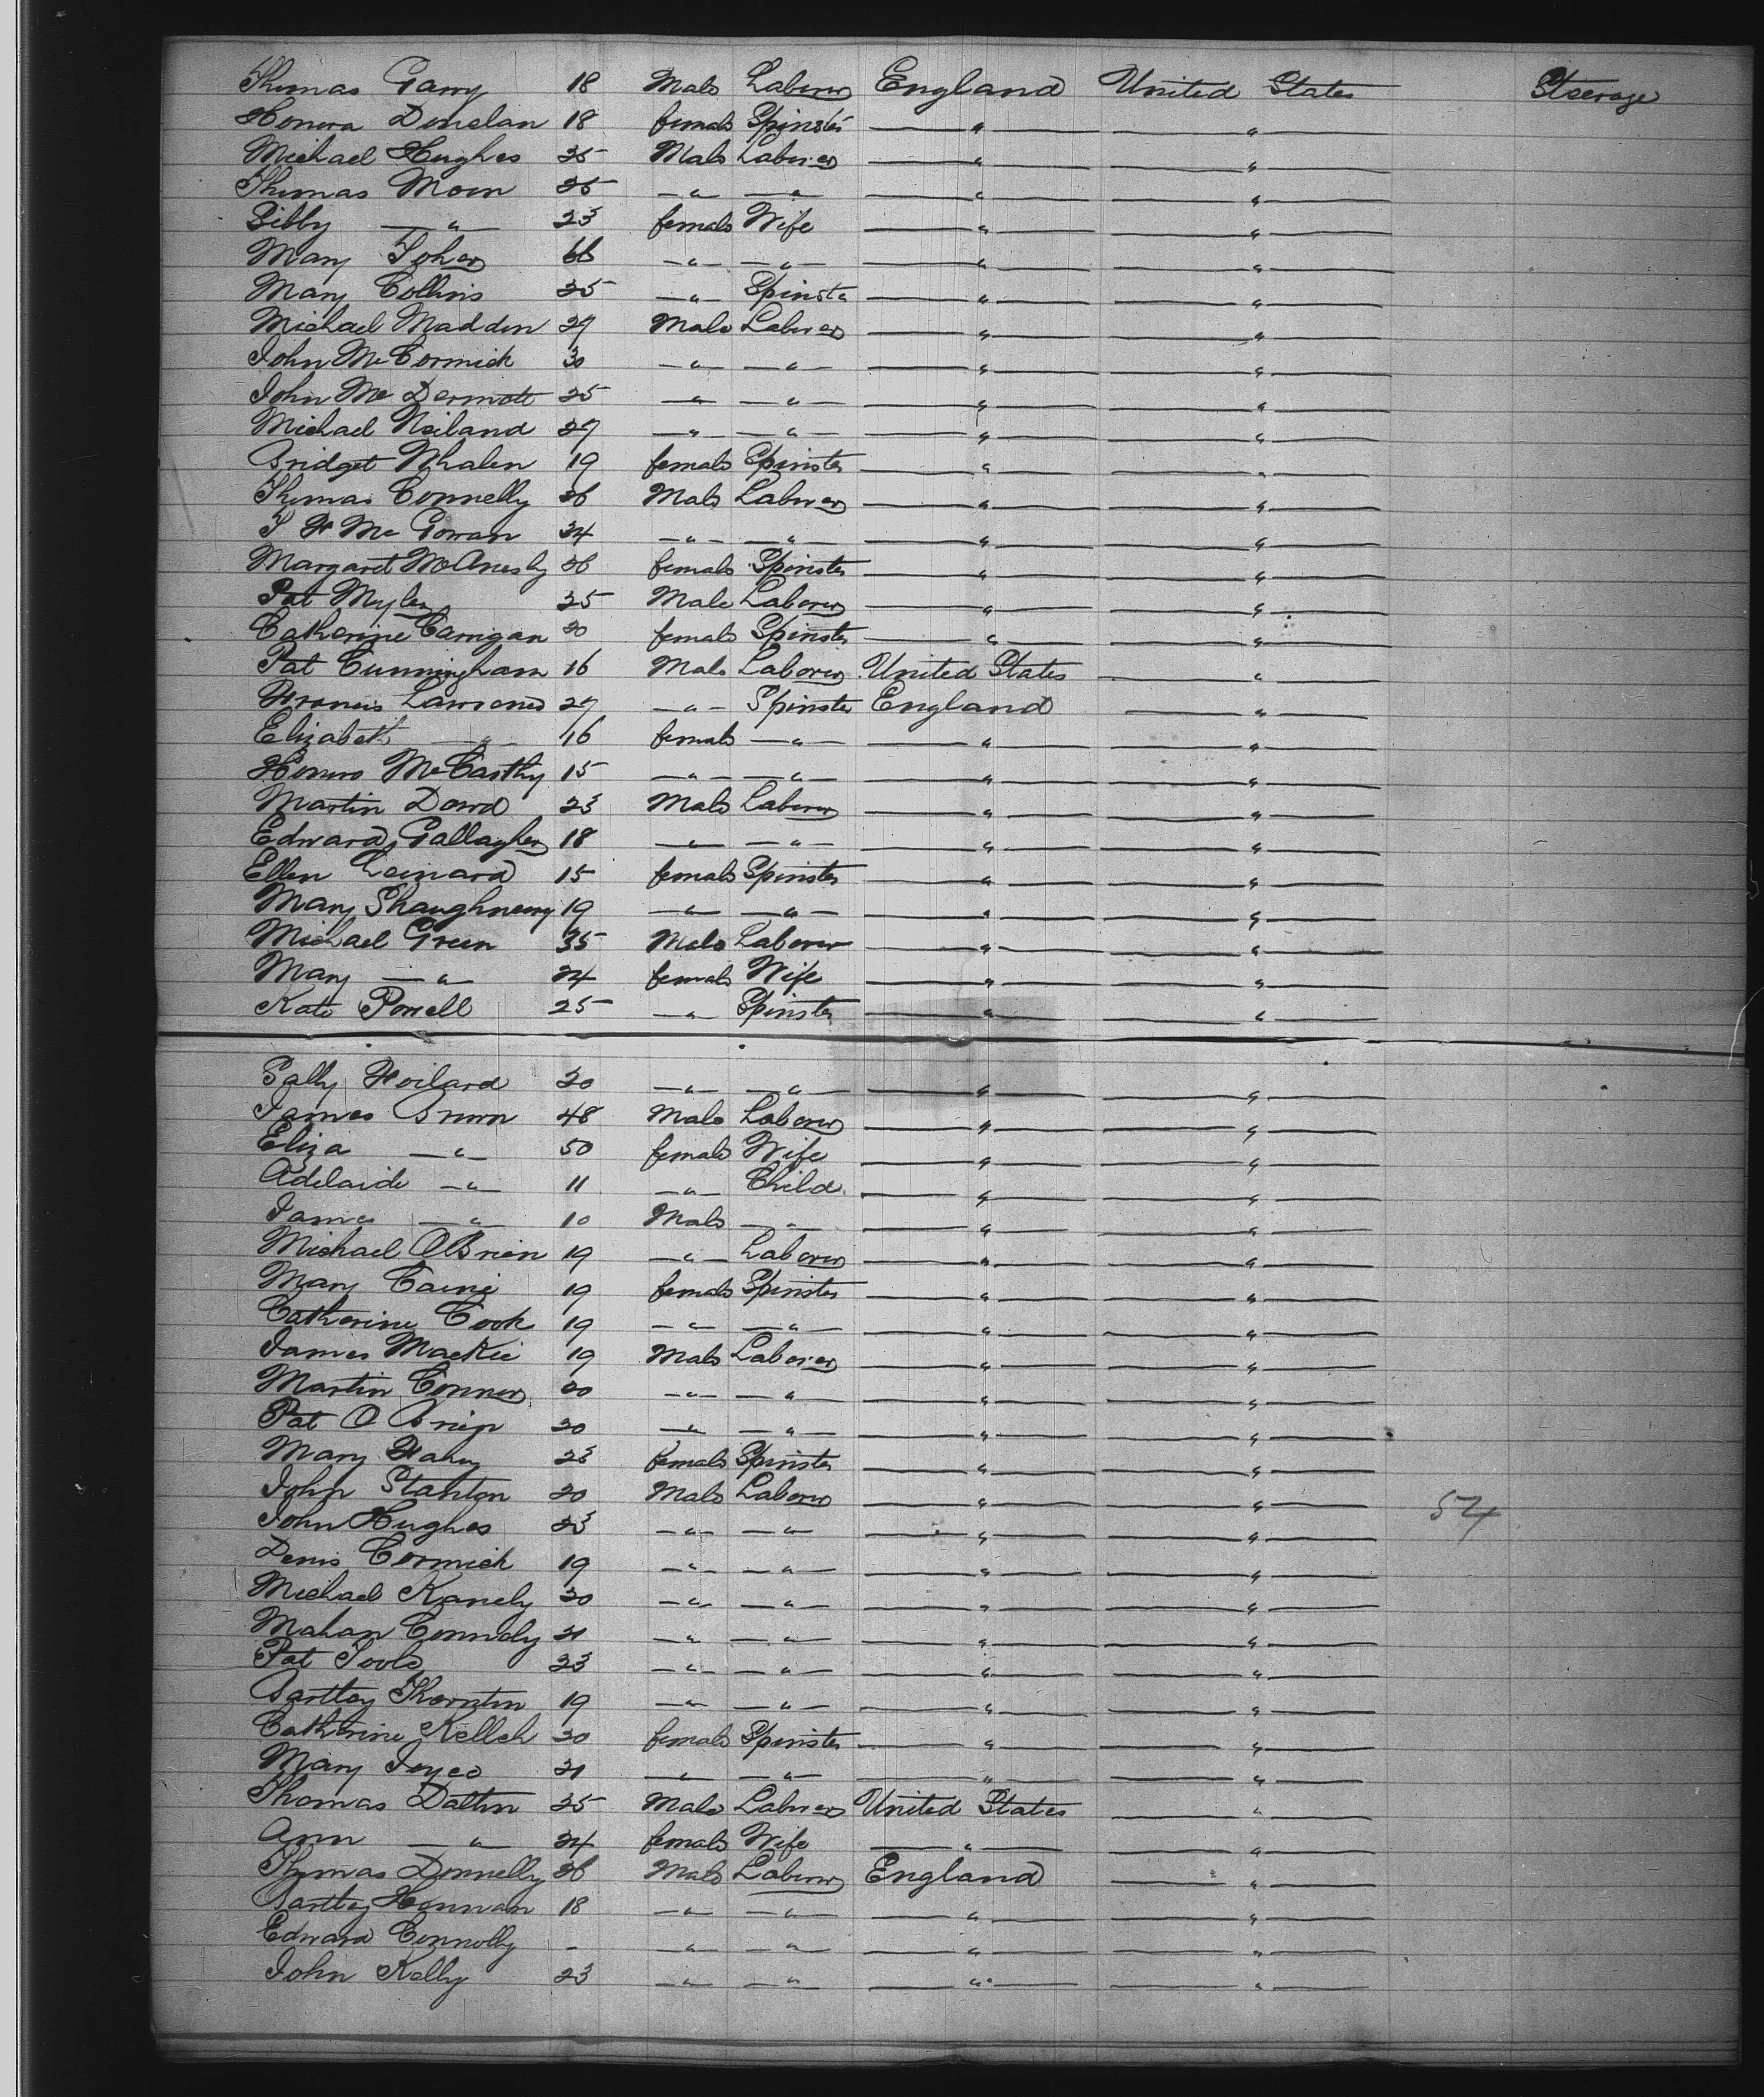 Thomas Garry 18 Male Laborer England United States Steerage
Honora Donelan 18 female Spinster — " — — " —
Michael Hughes 25 Male Laborer — " — — " —
Thomas Moen 26 — " — — " — — " — — " —
Bibby — " — 23 female Wife — " — — " —
Mary Toher 66 — " — — " — — " — — " —
Mary Collins 25 — " — Spinster — " — — " —
Michael Madden 29 Male Laborer — " — — " —
John McCormick 30 — " — — " — — " — — " —
John McDermott 25 — " — — " — — " — — " —
Michael Neiland 29 — " — — " — — " — — " —
Bridget Whalen 19 female Spinster — " — — " —
Thomas Connelly 26 Male Laborer — " — — " —
T F McGowan 24 — " — — " — — " — — " —
Margaret McAnesby 26 female Spinster — " — — " —
Pat Myler 25 Male Laborer — " — — " —
Catherine Carrigan 20 female Spinster — " — — " —
Pat Cunningham 16 Male Laborer United States — " —
Francis Lawrence 29 — " — Spinster England — " —
Elizabeth — " — 16 female — " — — " — — " —
Honora McCarthy 15 — " — — " — — " — — " —
Martin Dowd 23 Male Laborer — " — — " —
Edward Gallagher 18 — " — — " — — " — — " —
Ellen Leinard 15 female Spinster — " — — " —
Mary Shaughnessy 19 — " — — " — — " — — " —
Michael Green 35 Male Laborer — " — — " —
Mary — " — 24 female Wife — " — — " —
Kate Powell 25 — " — Spinster — " — — " —
Sally Hoilard 20 — " — — " — — " — — " —
James Brown 48 Male Laborer — " — — " —
Eliza — " — 50 female Wife — " — — " —
Adelaide — " — 11 — " — Child — " — — " —
James — " — 10 Male — " — — " — — " —
Michael OBrien 19 — " — Laborer — " — — " —
Mary Caine 19 female Spinster — " — — " —
Catherine Cook 19 — " — — " — — " — — " —
James Mackie 19 Male Laborer — " — — " —
Martin Conner 20 — " — — " — — " — — " —
Pat O Brien 20 — " — — " — — " — — " —
Mary Fahey 23 female Spinster — " — — " —
John Stanton 20 Male Laborer — " — — " — 54
John Hughes 23 — " — — " — — " — — " —
Denis Cormick 19 — " — — " — — " — — " —
Michael Kanely 20 — " — — " — — " — — " —
Mahan Connoly 21 — " — — " — — " — — " —
Pat Toole 23 — " — — " — — " — — " —
Bartley Thornton 19 — " — — " — — " — — " —
Catherine Kelleh 20 female Spinster — " — — " —
Mary Joyce 21 — " — — " — — " — — " —
Thomas Dalton 25 Male Laborer United States — " —
Ann — " — 24 female Wife — " — — " —
Thomas Donnelly 26 Male Laborer England — " —
Bartley Honnan 18 — " — — " — — " — — " —
Edward Connolly - — " — — " — — " — — " —
John Kelly 23 — " — — " — — " — — " —